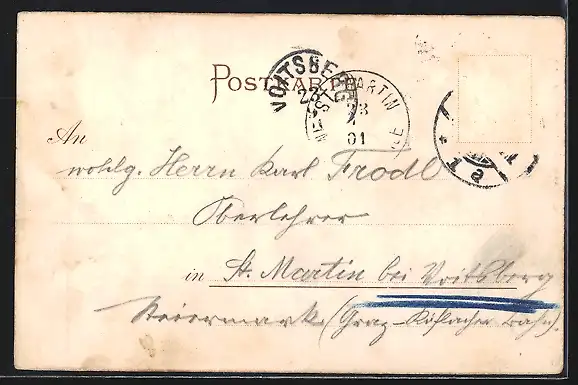 POSTKARTE
VOITSBERG
ST. MARTIN
23
4
01
An
wohlg. Herrn Karl Frodl
Oberlehrer
in St. Martin bei Voitsberg
Steiermark (Graz-Köflacher Bahn).